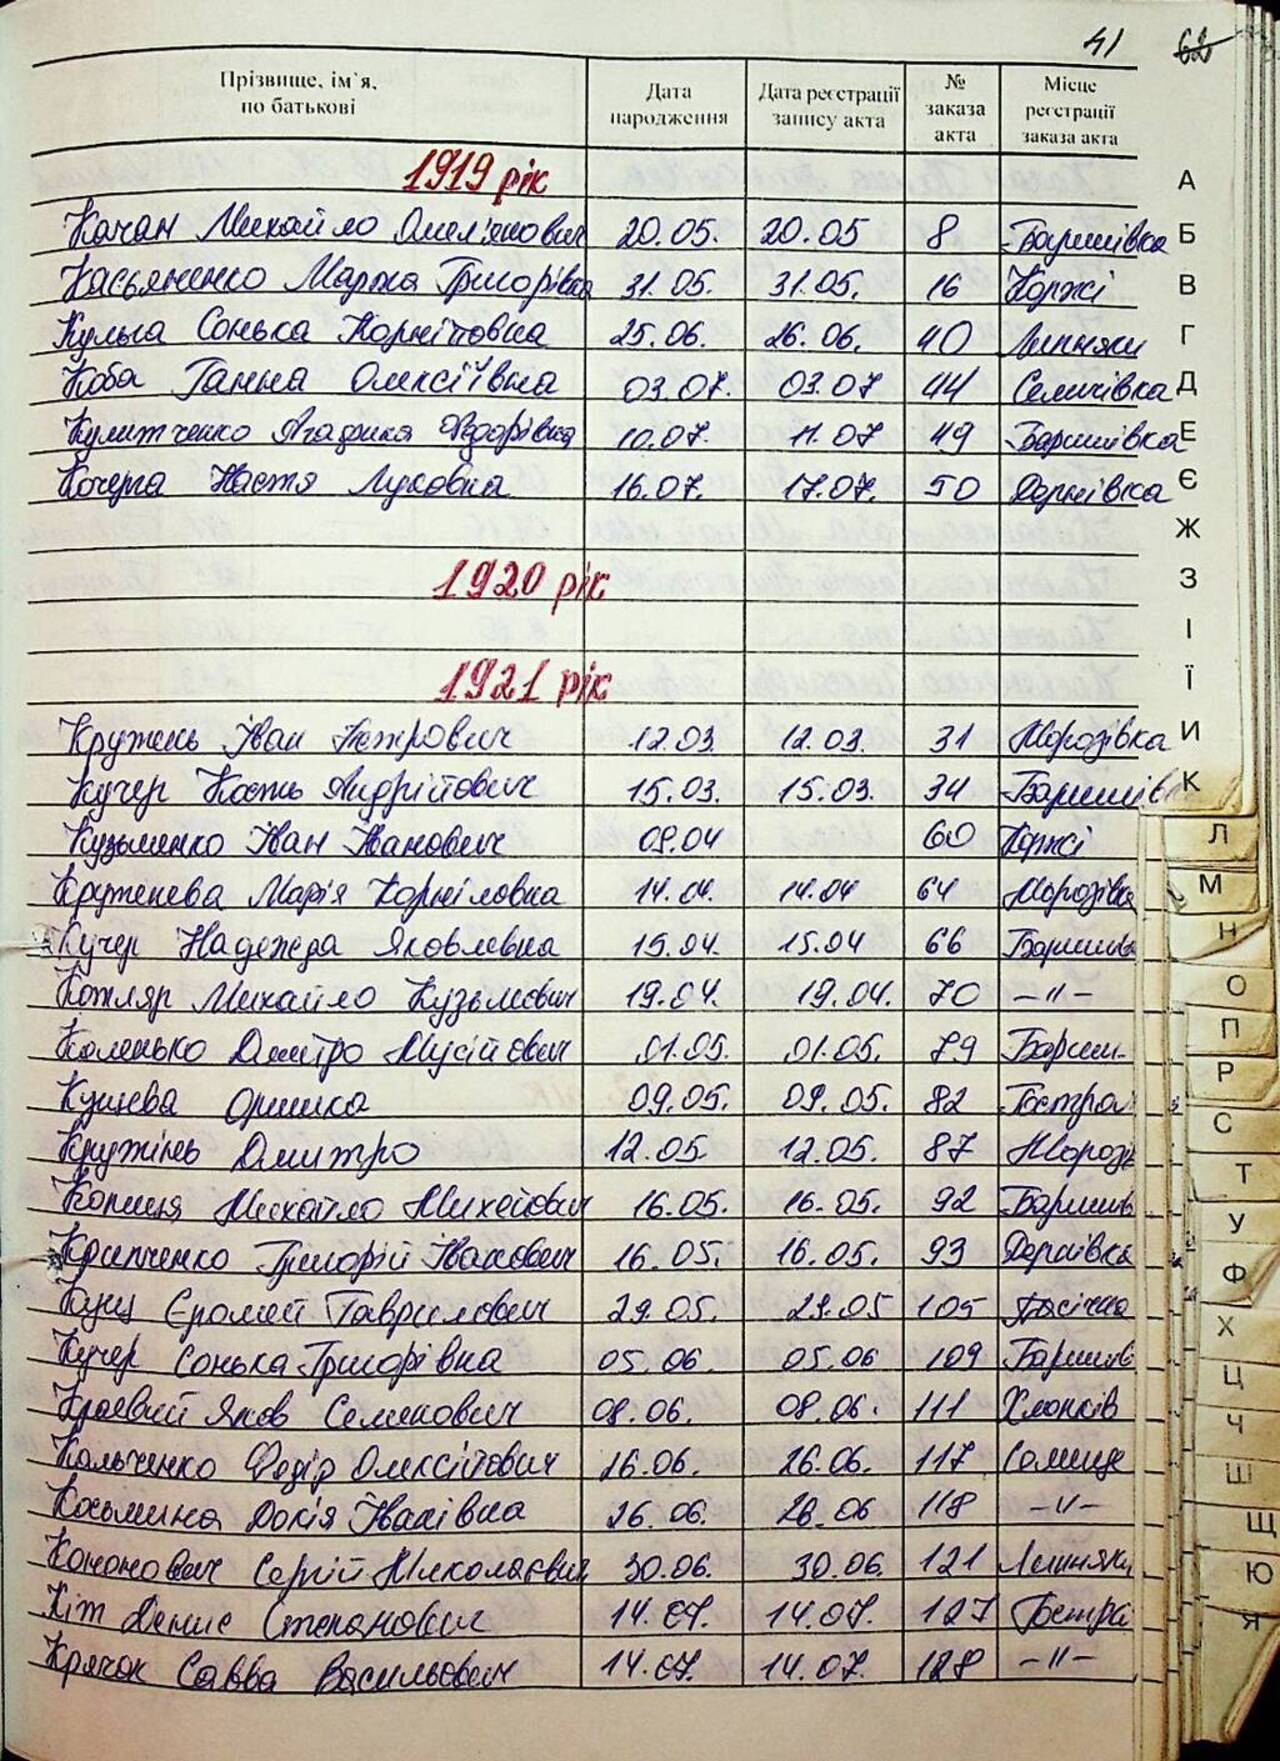 41 62
Прізвище, ім`я, по батькові Дата народження Дата реєстрації запису акта № заказа акта Місце реєстрації заказа акта
1919 рік
Качан Михайло Омел'янович 20.05. 20.05 8 Баришівка
Касьяненко Марфа Григорівна 31.05. 31.05. 16 Коржі
Кульга Сонька Корніївна 25.06. 26.06. 40 Липняки
Коба Ганна Олексіївна 03.07. 03.07 44 Селичівка
Агафія Федорівна 10.07. 11.07 49 Баришівка
Кочерга Настя Луковна 16.07. 17.07. 50 Дернівка
1920 рік
1921 рік
Кружень Іван Петрович 12.03. 12.03. 31 Морозівка
Кучер Кость Андрійович 15.03. 15.03. 34
Кузьменко Іван Іванович 08.04 60 Коржі
Круженева Марія Корніловна 14.04. 14.04 64 Морозівка
Кучер Надежда Яковлевна 15.04. 15.04 66
Котляр Михайло Кузьмович 19.04. 19.04. 70 –"–
Коленько Дмитро Мусійович 01.05. 01.05. 79 Бариш-
Оришка 09.05. 09.05. 82 Гостра
Кружінь Дмитро 12.05. 12.05. 87 Морозі
Копиця Михайло Михейович 16.05. 16.05. 92 Баришів
Крипченко Григорій Іванович 16.05. 16.05. 93 Дернівка
Куц Єромей Гаврилович 29.05. 29.05 105 Пасічна
Кучер Сонька Григорівна 05.06. 05.06 109 Баришів
Краєвий Яков Семенович 08.06. 08.06. 111 Хлопків
Кальченко Федір Олексійович 26.06. 26.06. 117 Селище
Косьмина Докія Іванівна 26.06. 26.06 118 –"–
Кононович Сергій Миколаєвич 30.06. 30.06. 121 Липняки
Кіт Денис Степанович 14.07. 14.07. 127 Гостра
Крячок Савва Васильович 14.07. 14.07. 128 –"–
А
Б
В
Г
Д
Е
Є
Ж
З
І
Ї
И
К
Л
М
Н
О
П
Р
С
Т
У
Ф
Х
Ц
Ч
Ш
Щ
Ю
Я